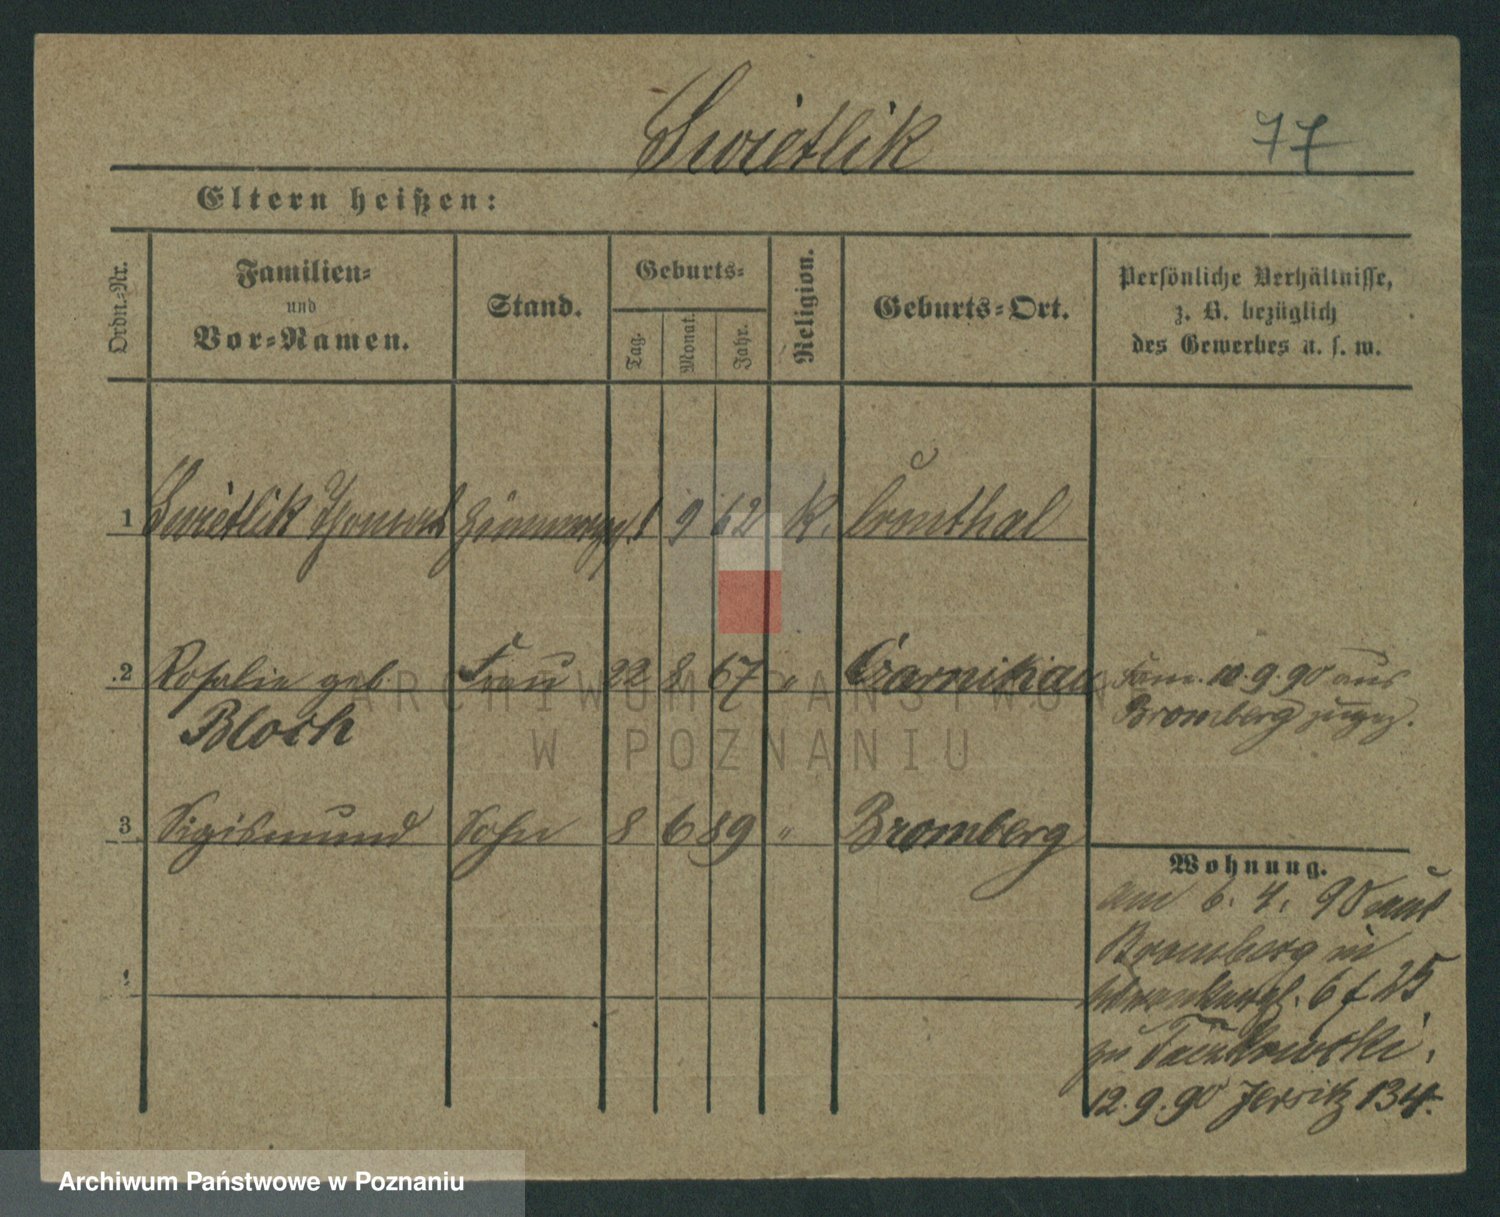 Swietlik 77
Eltern heißen:
Ordn.-Nr.
Familien-
und
Vor-Namen.
Stand.
Geburts-
Tag.
Monat.
Jahr.
Religion.
Geburts-Ort.
Persönliche Verhältnisse,
z. B. bezüglich
des Gewerbes u. s. w.
1 Swietlik Thomas 1 9 62 K.
2 Rosalie geb. Frau 22 8 67 " Czarnikau Fam. 10.9.90 aus
Bloch Bromberg zugez.
3 Sigismund Sohn 8 6 89 " Bromberg
Wohnung.
am 6. 4. 90 aus
Bromberg in
6 f 25
zu
12.9.90 Jersitz 134.
ARCHIWUM PAŃSTWOWE
W POZNANIU
Archiwum Państwowe w Poznaniu